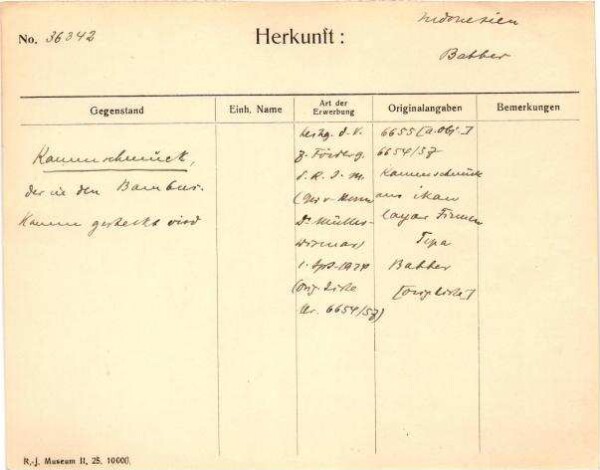 Indonesien
No. 36342 Herkunft: Babber
Gegenstand Einh. Name Art der Erwerbung Originalangaben Bemerkungen
Kammschmuck,
der in den Bambus-
kamm gesteckt wird
d. V.
z. Förderg.
d. R. J. M.
Dr Müller-
wismar)
1. Spt. 1924
(Orig. Liste
Nr. 6654/57)
6655 [a. Obj.]
6654/57
Kammschmuck
aus ikan
layar Finnen
Tepa
Babber
[Orig Liste]
R.-J. Museum II, 25. 10000.